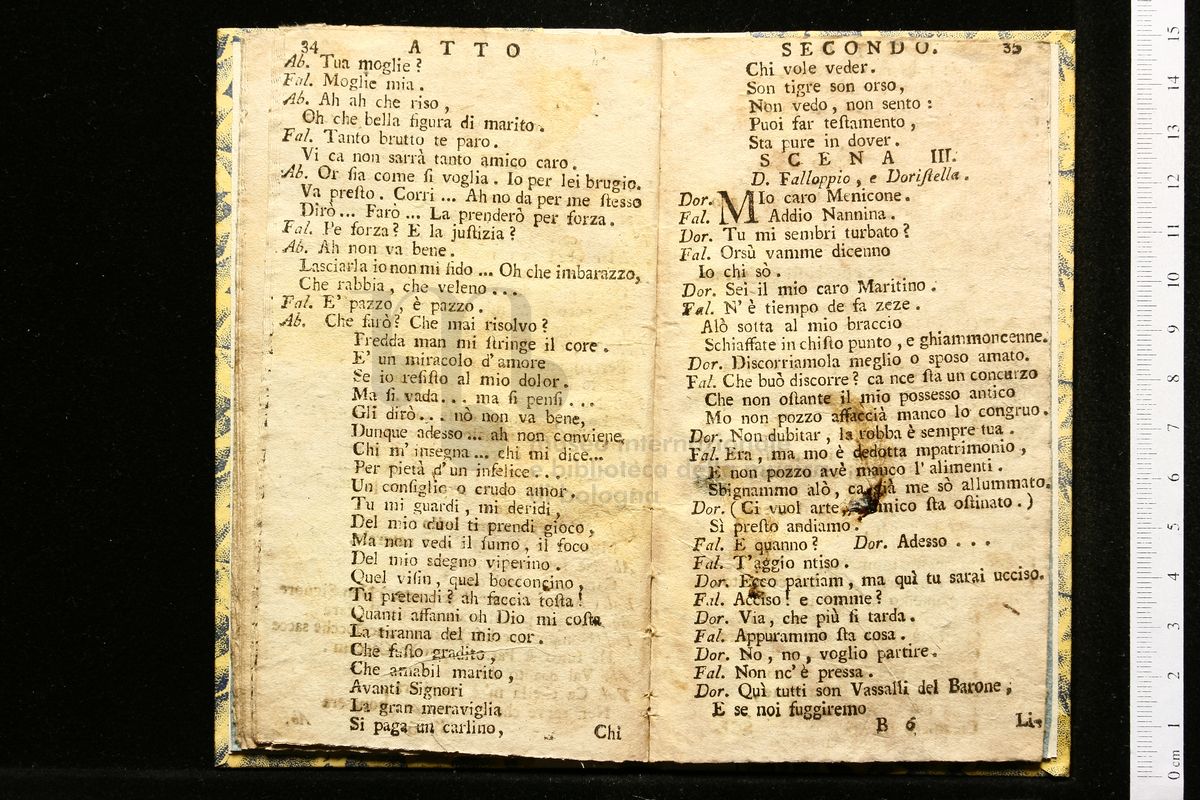 34 ATTO
Ab. Tua moglie?
Fal. Moglie mia.
Ab. Ah ah che riso,
Oh che bella figura di marito.
Fal. Tanto brutto te paro.
Vi ca non sarrà tanto amico caro.
Ab. Or ſia come ſi voglia. Io per lei brugio.
Va preſto. Corri ... Ah no da per me ſteſſo
Dirò... Farò ... La prenderò per forza.
Fal. Pe forza? E la juſtizia?
Ab. Ah non va bene.
Laſciarla io non mi fido ... Oh che imbarazzo,
Che rabbia, che veleno ...
Fal. E' pazzo, è pazzo.
Ab. Che farò? Che mai riſolvo?
Fredda man mi ſtringe il core.
E' un miracolo d'amore
Se io reſiſto al mio dolor.
Ma ſi vada... ma ſi penſi ...
Gli dirò... nò non va bene,
Dunque adeſſo ... ah non conviene,
Chi m'inſegna ... chi mi dice...
Per pietà d'un infelice...
Un conſiglio o crudo amor,
Tu mi guardi, mi deridi,
Del mio duol ti prendi gioco,
Ma non vedi il fumo, il foco
Del mio sdegno viperino.
Quel viſin, quel bocconcino,
Tu pretendi? ah faccia toſta!
Quanti affanni oh Dio mi coſta
La tiranna del mio cor.
Che fuſto gradito,
Che amabil marito,
Avanti Signori
La gran meraviglia
Si paga un carlino,
Chi
SECONDO. 35
Chi vole veder.
Son tigre son orso,
Non vedo, non sento:
Puoi far teſtamento,
Sta pure in dover.
SCENA III.
D. Falloppio, e Doriſtella.
Dor. MIo caro Menicone.
Fal. Addio Nannina.
Dor. Tu mi sembri turbato?
Fal. Orsù vamme dicenno
Io chi sò.
Dor. Sei il mio caro Maritino.
Fal. N'è tiempo de fa zeze.
Alò sotta al mio braccio
Schiaffate in chiſto punto, e ghiammoncenne.
Dor. Discorriamola meglio o sposo amato.
Fal. Che buò discorre? ca nce ſta un concurzo
Che non oſtante il mio possesso antico
Mo non pozzo affaccià manco lo congruo.
Dor. Non dubitar, la robba è sempre tua.
Fal. Era, ma mo è dedotta mpatrimonio,
E non pozzo avè manco l'alimenti.
Sbignammo alò, ca già me sò allummato.
Dor. (Ci vuol arte, amico ſta oſtinato.)
Sì preſto andiamo.
Fal. E quanno? Dor. Adesso ...
Fal. T'aggio ntiso.
Dor. Ecco partiam, ma quì tu sarai ucciso.
Fal. Acciso! e comme?
Dor. Via, che più ſi tarda.
Fal. Appurammo ſta cosa.
Dor. No, no, voglio partire.
Fal. Non nc'è pressa.
Dor. Quì tutti son Vassalli del Barone,
E se noi fuggiremo
B 6 Li-
museo internazionale
e biblioteca della
bologna